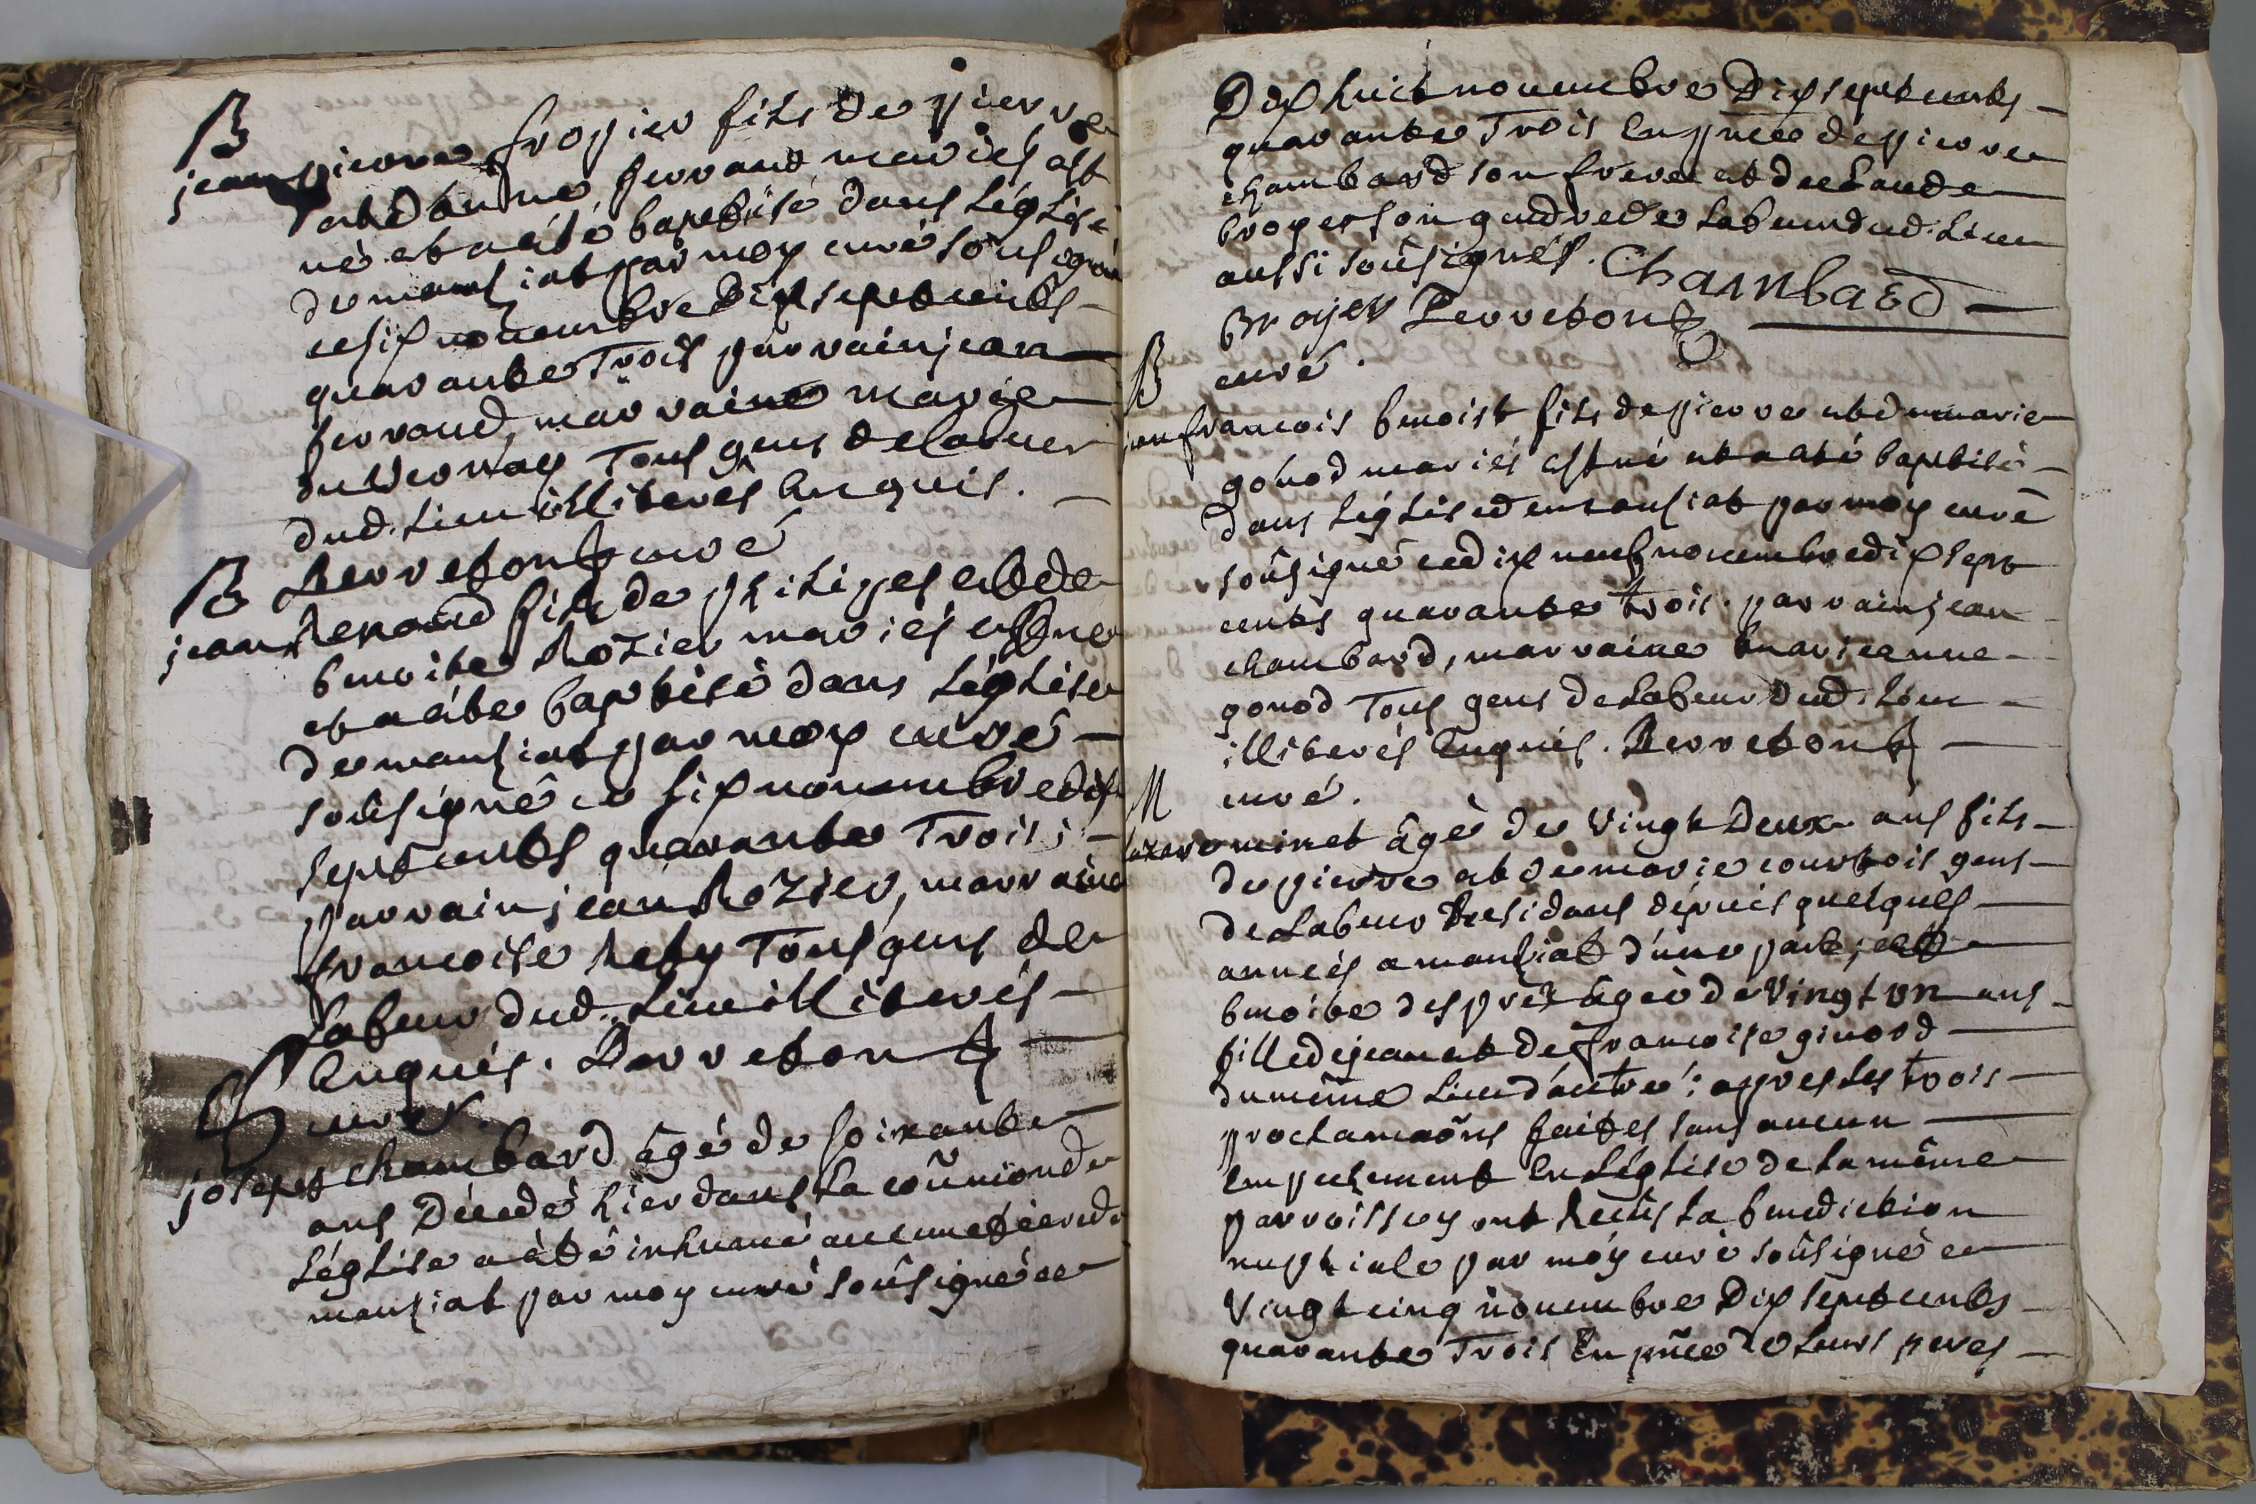 B
jean pierre fropier fils de pierre
et danne ferrand mariés est
né et a été baptisé dans léglise
de manziat par moy curé sousigné
ce six novembre dix sept cents
quarante Trois parrain jean
ferrand, marraine marie
du Vernay Tous gens de labeur
dud. Lieu illiterés Enquis.
Perreton curé
B
jean Renoud fils de philipes et de
benoite Rozier mariés est né
et a été baptisé dans léglise
de manziat par moy curé
soûsigné ce six novembre dix
sept cents quarante Trois;
parrain jean Rozier, marraine
francoise Rety Tous gens de
labeur dud. Lieu illiterés
Enquis. Perreton
curé.
S
joseph chambard âgé de soixante
ans Décédé hier dans la coũnion de
léglise a été inhumé au cimetière de
manziat par moy curé soûsigné ce
Dix huit novembre Dix sept cents
quarante Trois En pñce de pierre
chambard son frere et de Claude
broyer son gendre de labeur dud. Lieu
aussi soûsignés. Chambard
Broyer Perreton
curé.
B
jean francois benoist fils de pierre et de marie
gonod mariés est né et a été baptisé
dans léglise de manziat par moy curé
soûsigné ce dix neuf novembre dix sept
cents quarante trois. parrain jean
chambard, marraine marieanne
gonod Tous gens de Labeur dud. Lieu
illiterés Enquis. Perreton
curé.
M
Lazare minet âgé de Vingt Deux ans fils
de pierre et de marie courtois gens
de Labeur Residans dépuis quelques
années a manziat d'une part; et
benoite desprez âgée de Vingt un ans
fille de jean et de francoise ginord
du même Lieu d'autre: apres les trois
proclamaõns faites sans aucun
Empechement En Léglise de la même
parroisse y ont Recûs la benediction
nuptiale par moy curé soûsigné ce
Vingt cinq novembre Dix sept cents
quarante Trois En pñce de Leurs peres